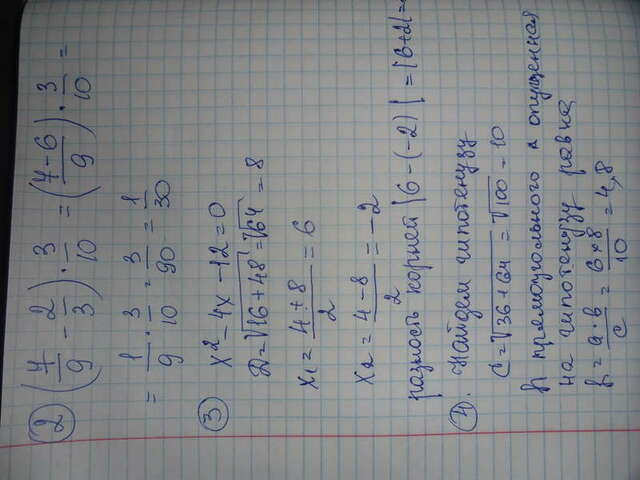 ② (7/9 - 2/3) · 3/10 = ((7-6)/9) · 3/10 =
= 1/9 · 3/10 = 3/90 = 1/30
③ x² - 4x - 12 = 0
D = √16 + 48 = √64 = 8
x₁ = (4 + 8)/2 = 6
x₂ = (4 - 8)/2 = -2
разность корней |6 - (-2)| = |6+2| =
④. Найдем гипотенузу
C = √36 + 64 = √100 = 10
h прямоугольного опущенная
на гипотенузу равна
h = (a · b)/c = (6 × 8)/10 = 4,8